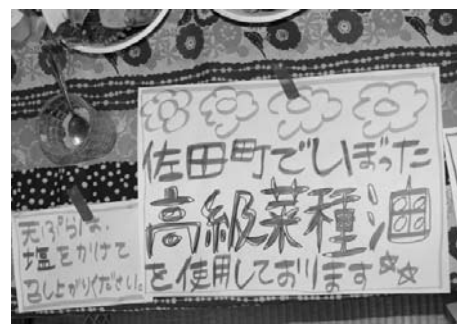 佐田町でしぼった
高級菜種油
を使用しております☆☆
天ぷらは、
塩をかけて
召し上がりください。